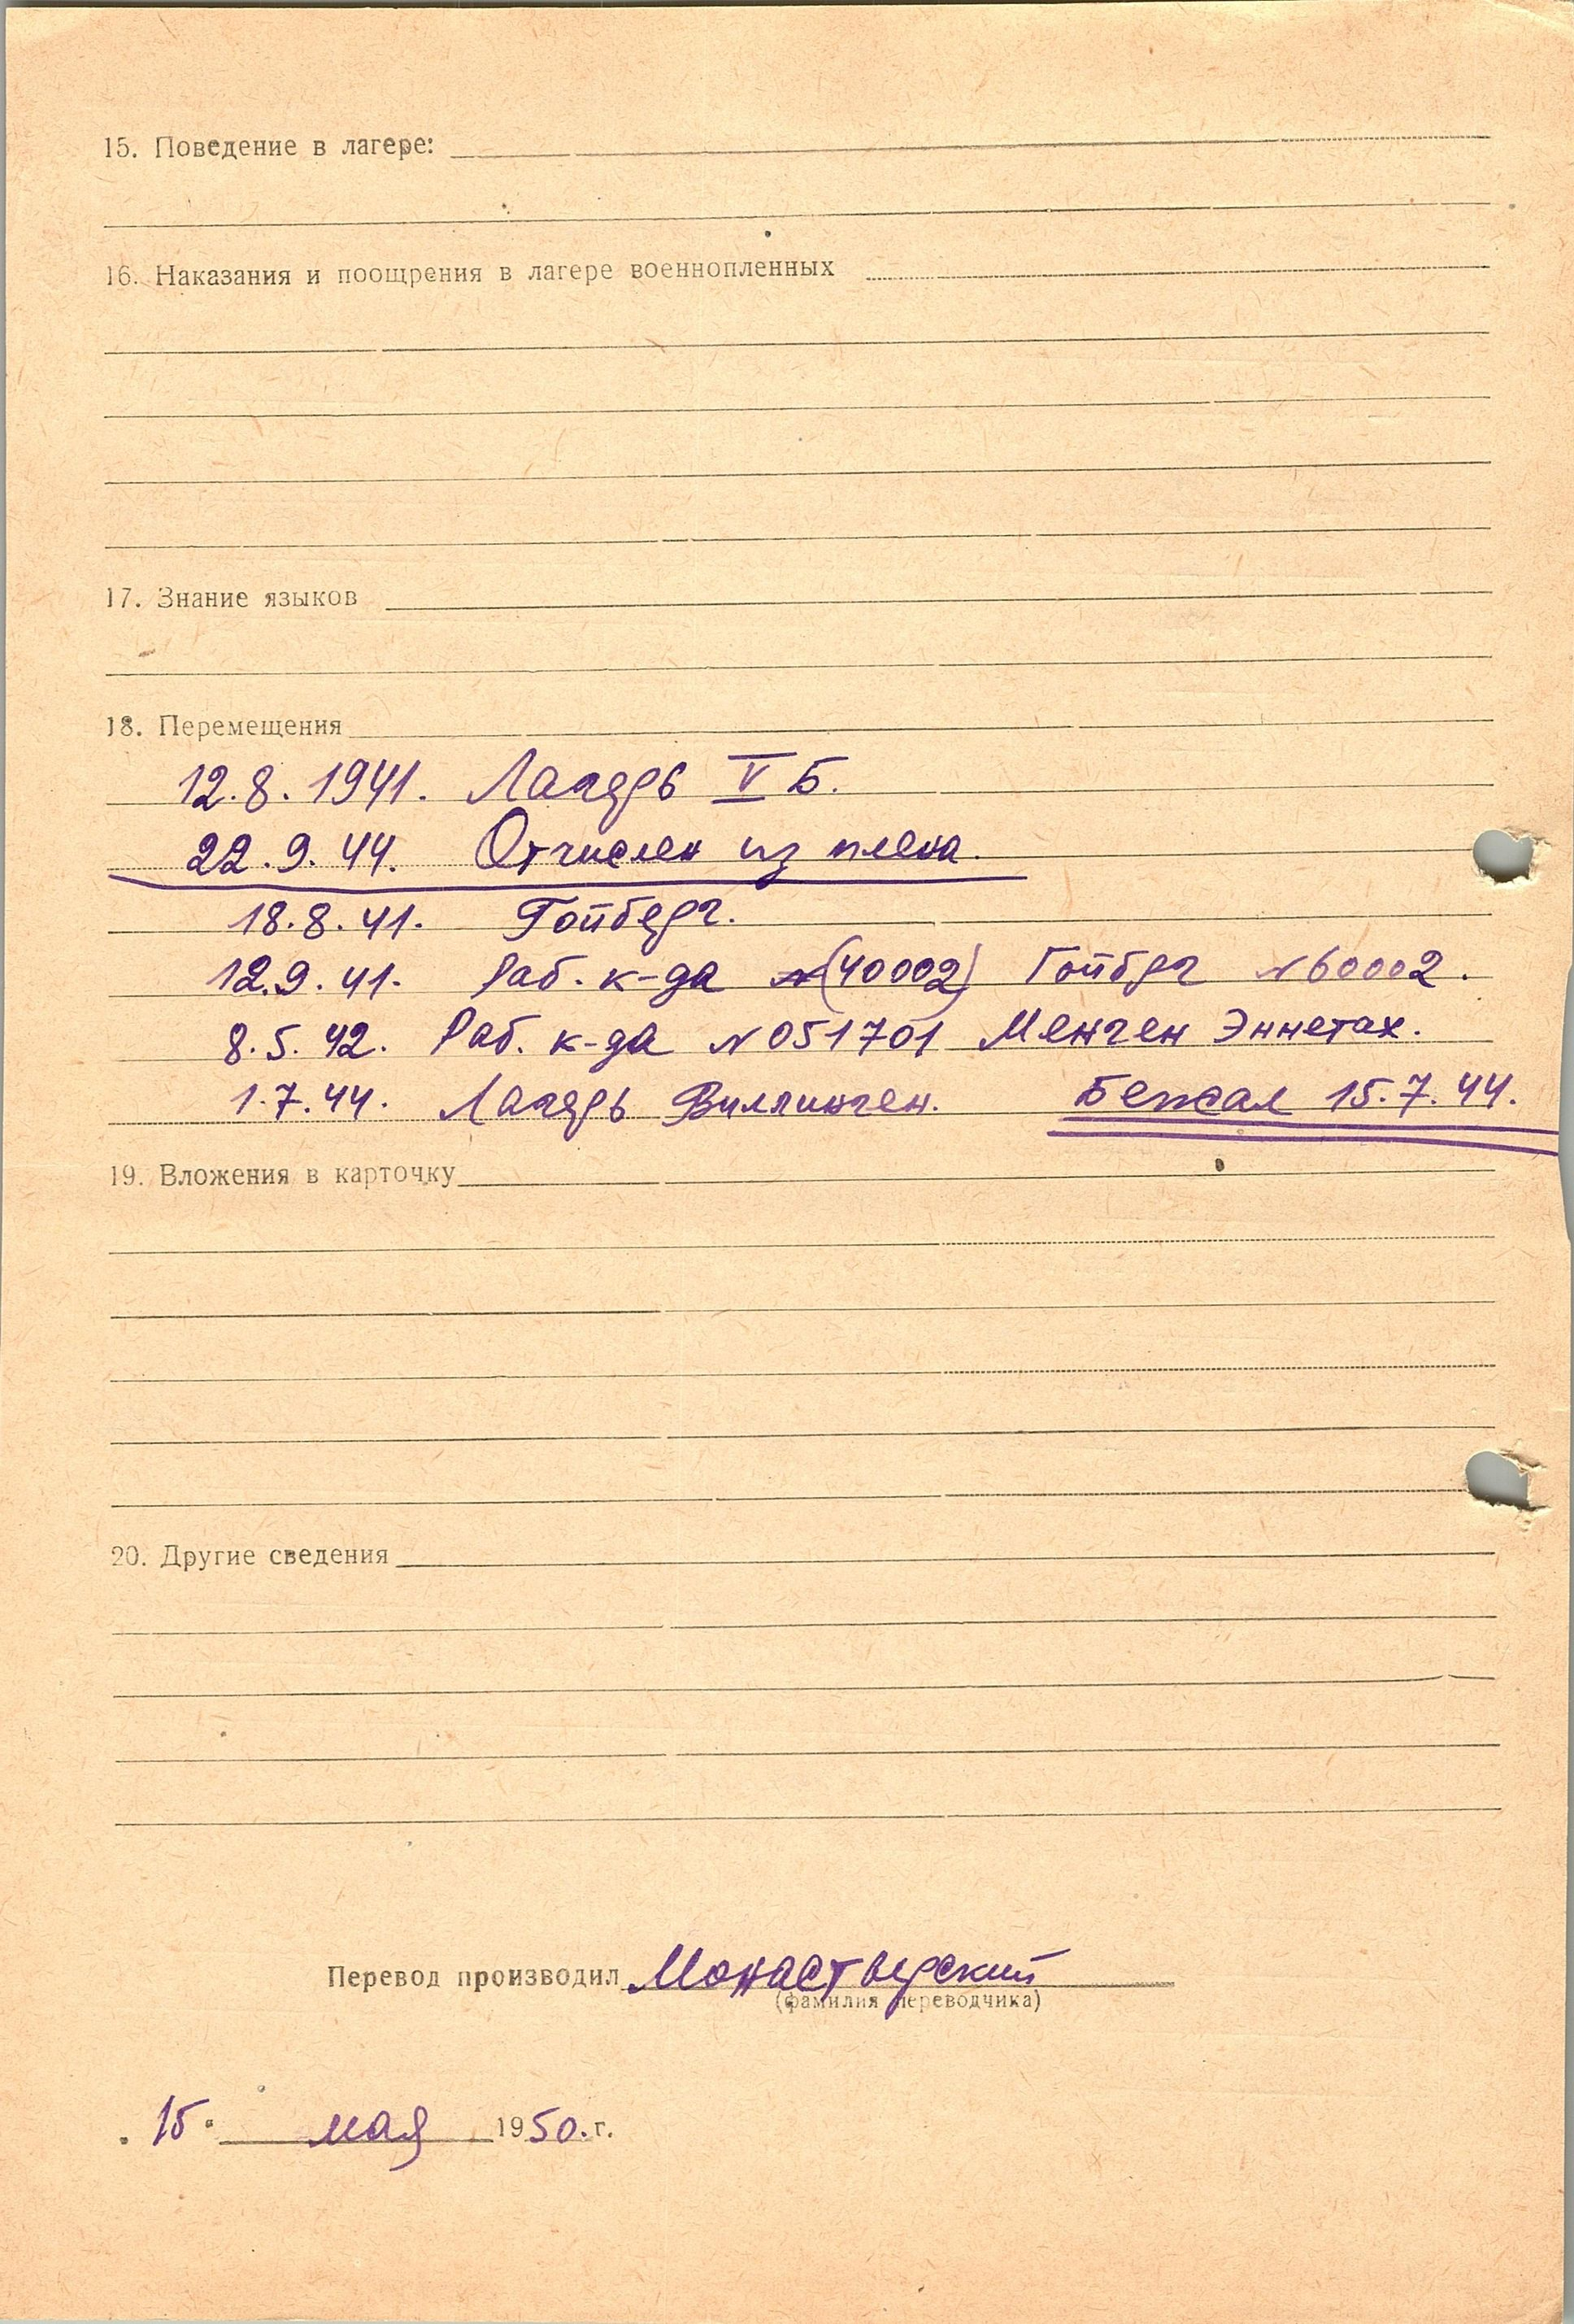 15. Поведение в лагере:
16. Наказания и поощрения в лагере военнопленных
17. Знание языков
18. Перемещения
12.8.1941. Лагерь V Б.
22.9.44. Отчислен из плена.
18.8.41. Гойберг.
12.9.41. Раб. к-да №(40002) Гойбрг №60002.
8.5.42. Раб. к-да №051701 Менген Эннетах.
1.7.44. Лагерь Виллинген. Бежал 15.7.44.
19. Вложения в карточку
20. Другие сведения
Перевод производил Монастверский
(фамилия переводчика)
15 мая 1950.г.